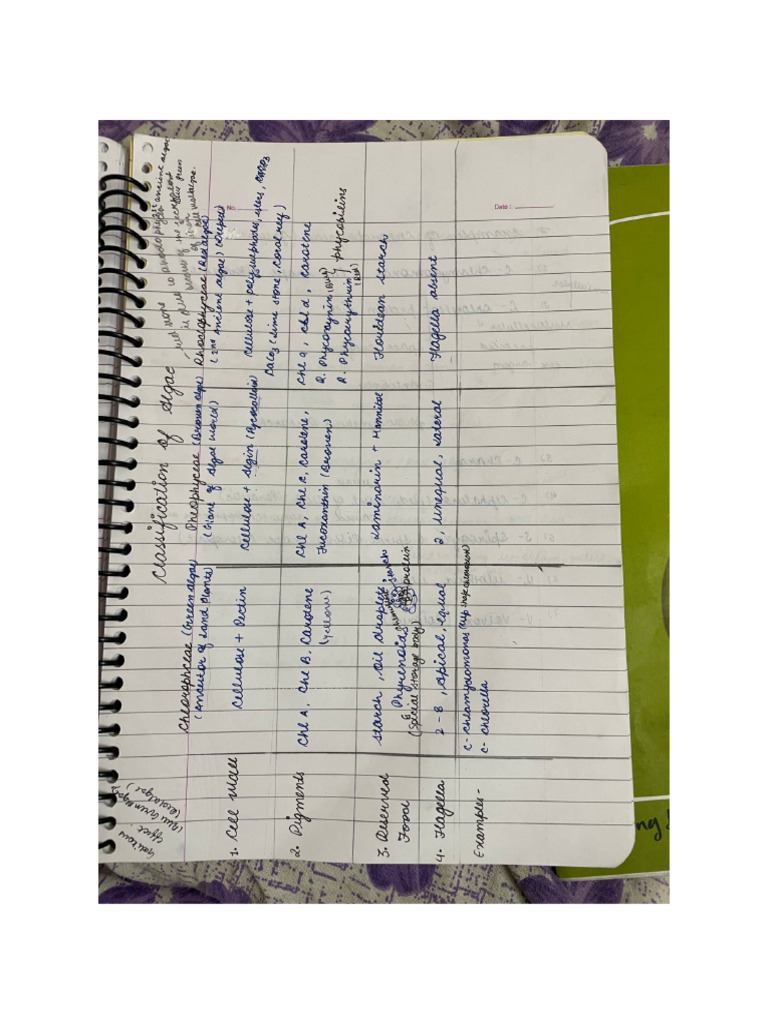 Classification of Algae
Chlorophceae (Green algae)
(Ancestor of Land Plants)
Pheophyceae (Brown algae)
(Giane of Algal world)
Rhodophyceae (Red algae)
(2nd Ancient algae)
1. Cell wall
Cellulose + Pectin
Cellulose + Algin (Phycocolloid)
Cellulose + polysulphate esters, CaCO3
CaCO3 (Lime stone, Coral reef)
2. Pigments
Chl A, Chl B, Carotene
(Yellow)
Chl A, Chl C, Carotene,
Fucoxanthin (Brown)
Chl a, Chl d, Carotene
R. Phycocynin (Blue)
R. Phycorythrin (Red)
phycobilins
3. Reserved
Food
Starch, oil droplets
Phyrenoids
starch
protein
(Special storage body)
Laminarin + Mannitol
Floridean starch
4. Flagella
2-8, Apical, equal
2, unequal, Lateral
Flagella absent
Examples-
C- Chlamydomonas (cup shape chloroplast)
C- Chlorella
Gaidukov
effect
(Blue Green Algae)
(Red algae)
No.
Date :